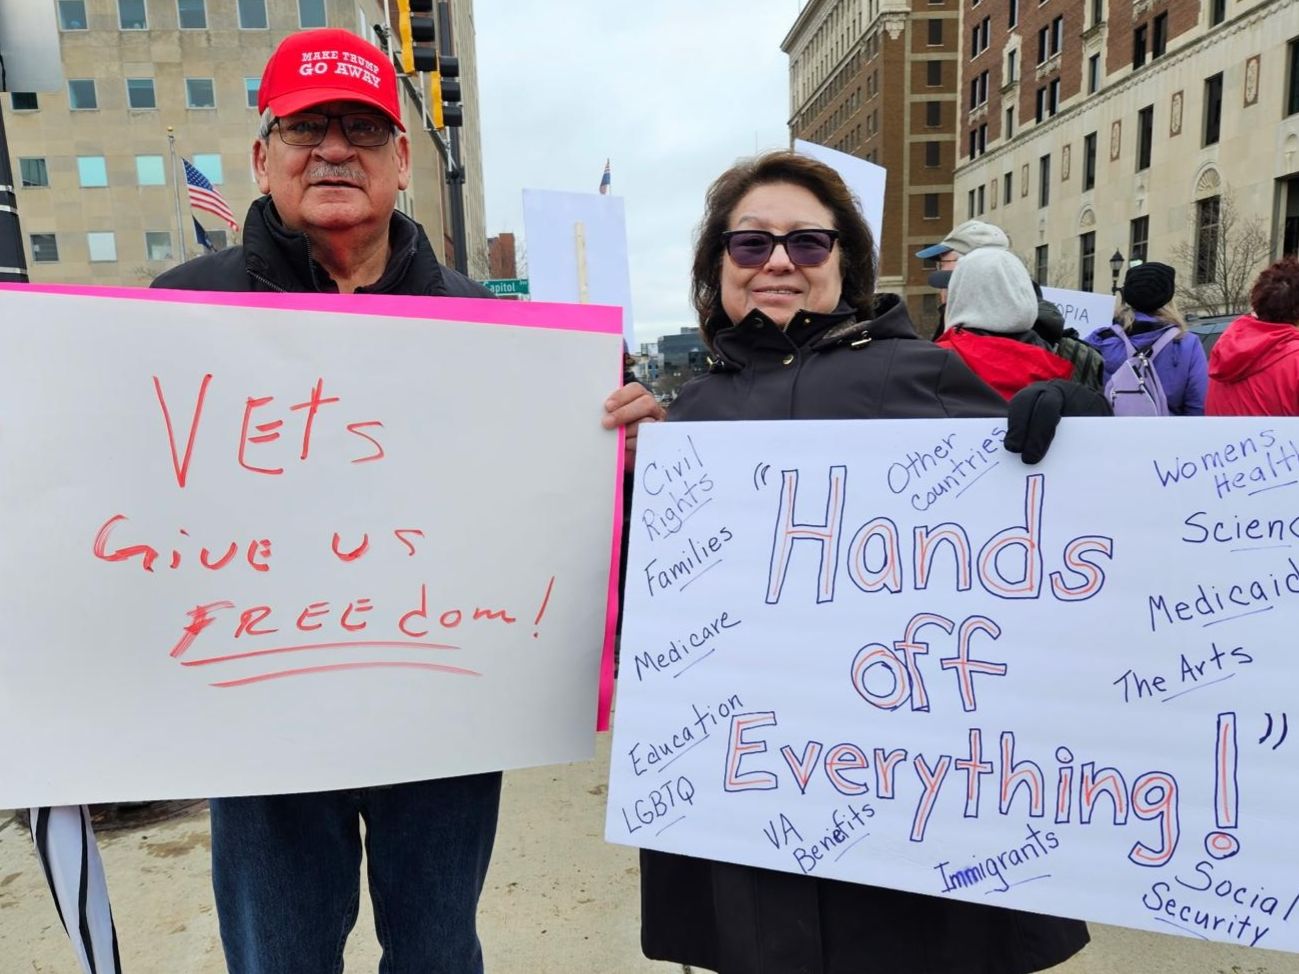 MAKE TRUMP
GO AWAY
Capitol
OPIA
VEts
GiVE US
FREEdom!
Civil
Rights
Families
Medicare
Education
LGBTQ
"Hands
off
Everything!"
Other
countries
Womens
Health
Scienc
Medicaid
The Arts
VA
Benefits
Immigrants
Social
Security